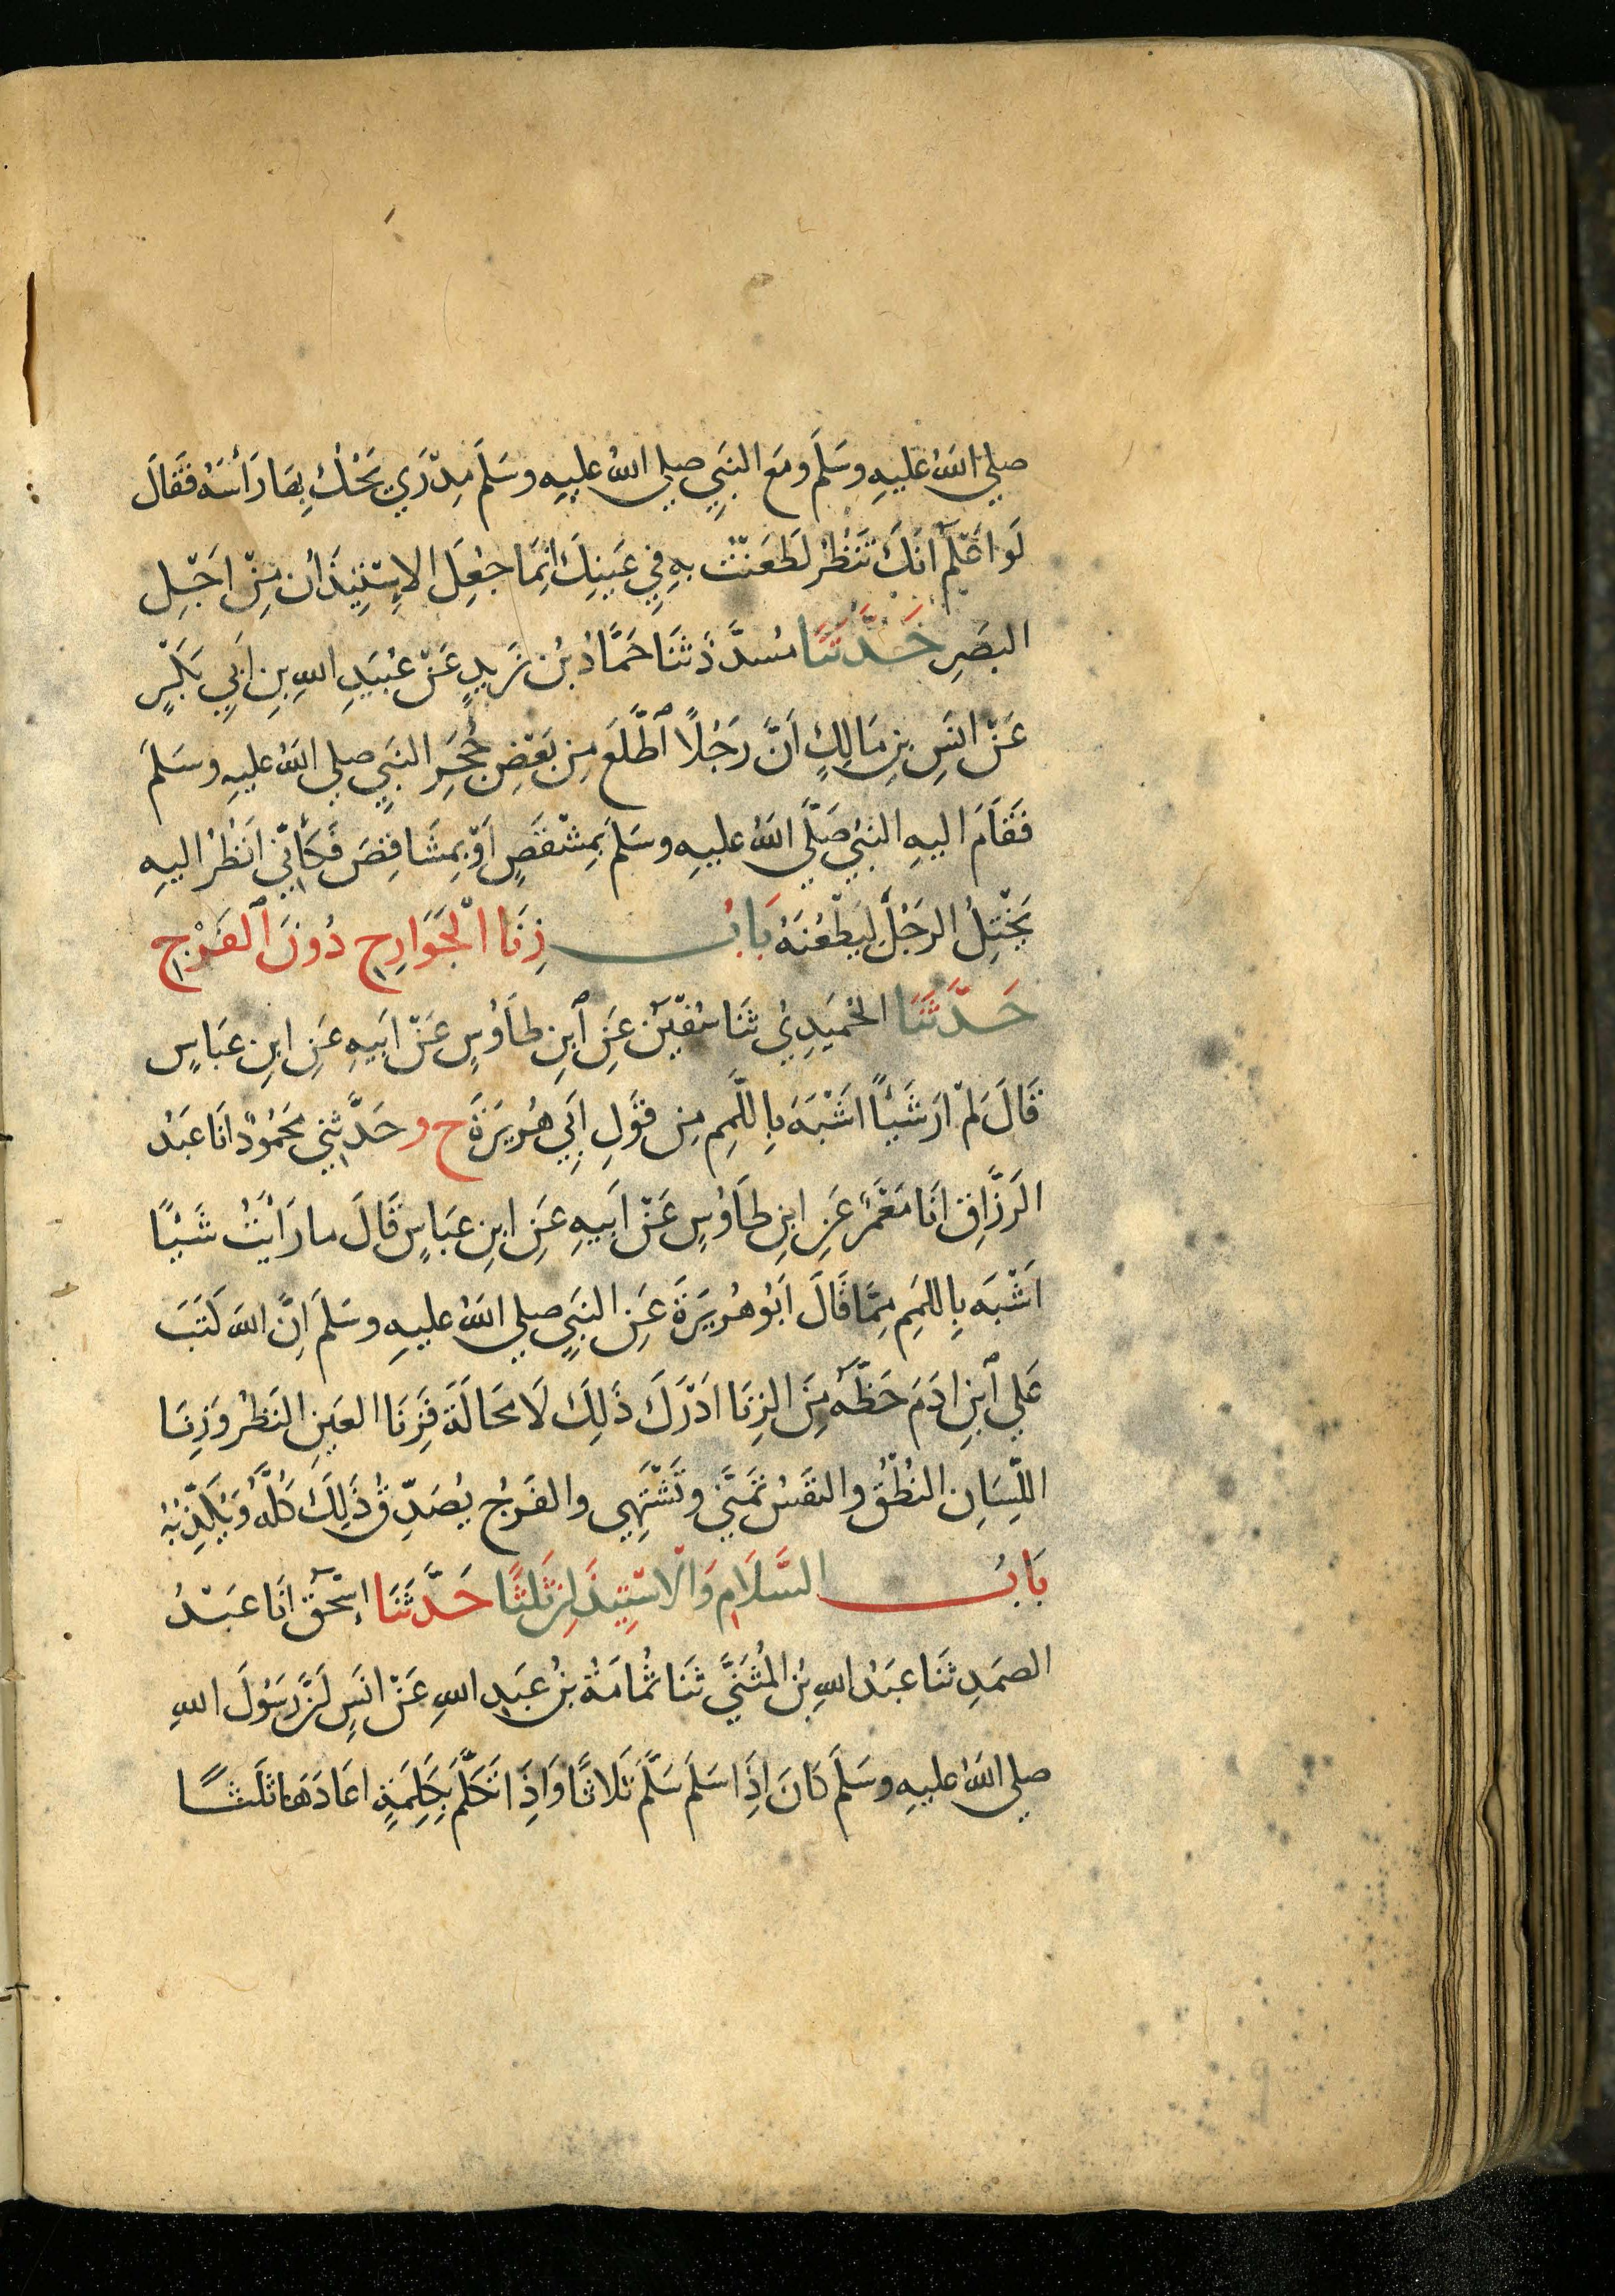 صلي اللهُ عليهِ وسَلَّمَ ومَع النبَيِ صلي اللهُ عليهِ وسَلَّمَ مِدْرَي يَحْكُ بِهَا رَأسَهُ فقَالَ
لَو اعْلَمُ انَكَ تَنْظُرُ لَطَعَنْتُ بهِ فِي عَينِكَ انِمَا جُعِلَ الاِسْتِيذَانُ مِنْ اجْلِ
البصَرِ حَدَّثَنَا مسُدَّدٌ ثَنَا حَمَّادُ بْن زَيدٍ عَنْ عُبَيدِ اللهِ بنِ ابَيِ بَكْرٍ
عَنْ انَسِ بنِ مَالِكٍ اَنَّ رَجُلًا ٱطَّلَعَ مِن بَعْضِ حُجَرِ النبَيِ صلي اللهُ عليهِ وسَلمَ
فَقَامَ اليهِ النبَيُ صَلَّي اللهُ عليهِ وسَلمَ بِمِشْقَصٍ اَوْ بِمَشَاقِصَ فَكَأنِّي اَنْظُرُ اليهِ
يَخْتِلُ الرجَلَ ليَطْعُنَهُ بَابُ زِنَا الْجَوَارِحِ دُونَ ٱلفَرْجِ
حَدَّثَنَا الحُمَيدِيُ ثَنَا سُفْيَن عَنِ ٱبنِ طاَوُسٍ عَنْ ابَيِهِ عَنِ ابنِ عبَاسٍ
قَالَ لمْ ارَ شَيْأً اشْبَهَ بِاللَّمَمِ مِن قَولِ ابَيِ هُرَيرَةَ ح و حَدَّثنِي مَحْمُودٌ انَا عَبْدُ
الرَزَّاقِ انَا مَعْمَرٌ عَنِ ابنِ طاَوُسٍ عَنْ ابَيِهِ عَنِ ابنِ عبَاسٍ قَالَ ما رَايْتُ شَيْئًا
اَشْبَه بِاللمَمِ مِمَّا قَالَ اَبُو هُرَيرَةَ عَنِ النبَيِ صلي اللهُ عليهِ وسَلمَ اِنَّ اللهَ كَتَبَ
عَلَي ٱبنِ ادَمَ حَظَّهُ مِنَ الزِنَا ادْرَكَ ذَلِكَ لَا مَحَالَةَ فَزِنَا العَينِ النَظرُ وَزِنَا
اللّسَانِ النُطْقُ والنفَسُ تَمَنَّي وتَشْتَهِي والفَرجُ يُصَدِّقُ ذَلِكَ كُلَّهُ وَيُكَذِّبُهُ
بَابُ السَّلَامِ وَالْاسْتِيذَانِ ثَلثًا حَدَّثَنَا إسْحَقُ انَا عَبْدُ
الصمَدِ ثَنَا عبَدُ اللهِ بنُ المُثَنَّي ثَنَا ثُمَامَةُ بْنُ عبَدِ اللهِ عَنْ انَسِ اَنَّ رَسُولَ اللهِ
صلي اللهُ عليهِ وسَلَّمَ كَانَ اِذَا سَلَمَ سَلَّمَ ثَلَاثًا وَاِذَا تَكَلَّمَ بِكَلِمَةٍ اعَادَهَا ثَلَثًا